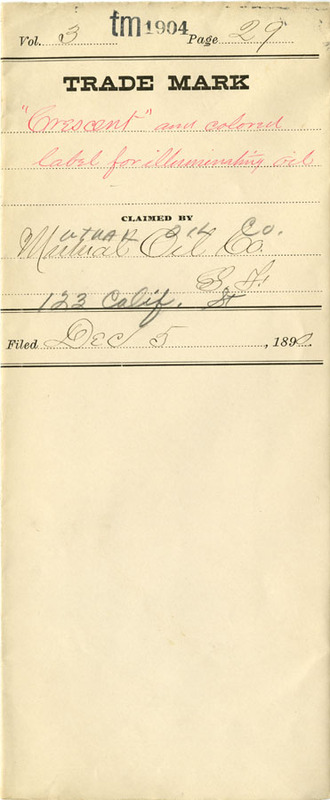 Vol. 3 tm 1904 Page 29
TRADE MARK
"Crescent" and colored
label for illuminating oil
CLAIMED BY
MUTUAL OIL CO.
Mutual Oil Co.
S. F.
123 Calif. St
Filed Dec 5, 1890.